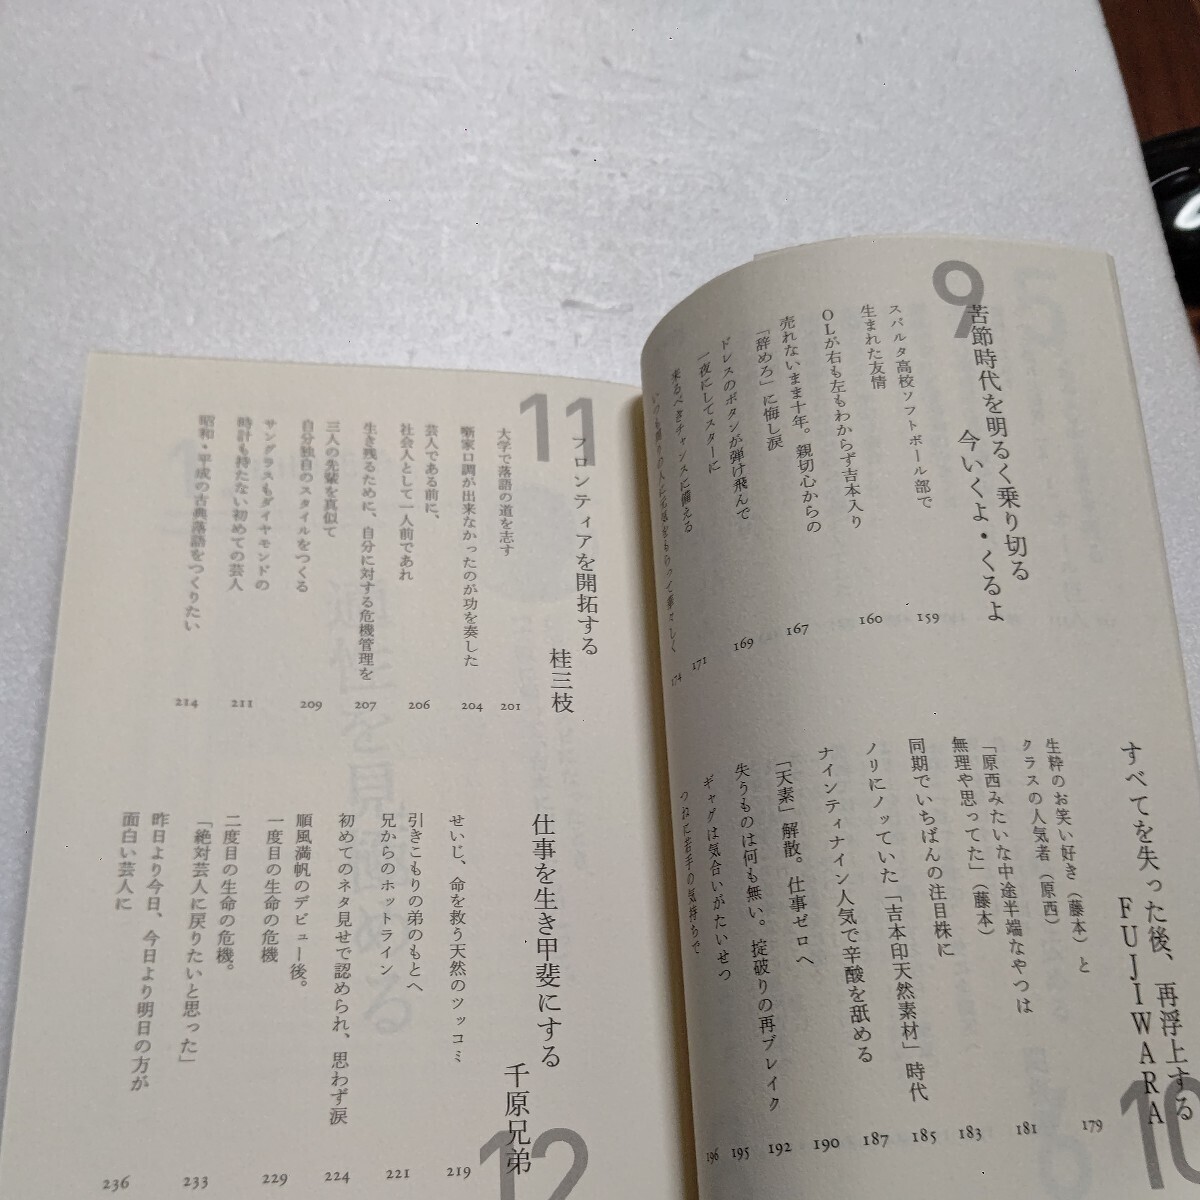 9
苦節時代を明るく乗り切る
今いくよ・くるよ
スパルタ高校ソフトボール部で
生まれた友情 159
OLが右も左もわからず吉本入り 160
売れないまま十年。親切心からの
「辞めろ」に悔し涙 167
ドレスのボタンが弾け飛んで
一夜にしてスターに 169
来るべきチャンスに備える 171
174
10
すべてを失った後、再浮上する
FUJIWARA
生粋のお笑い好き（藤本）と
クラスの人気者（原西） 179
「原西みたいな中途半端なやつは
無理や思ってた」（藤本） 181
同期でいちばんの注目株に 183
ノリにノッていた「吉本印天然素材」時代 185
ナインティナイン人気で辛酸を舐める 187
「天素」解散。仕事ゼロへ 190
失うものは何も無い。掟破りの再ブレイク 192
ギャグは気合いがたいせつ 195
つねに若手の気持ちで 196
11
フロンティアを開拓する
桂三枝
大学で落語の道を志す 201
噺家口調が出来なかったのが功を奏した 204
芸人である前に、
社会人として一人前であれ 206
生き残るために、自分に対する危機管理を 207
三人の先輩を真似て
自分独自のスタイルをつくる 209
サングラスもダイヤモンドの
時計も持たない初めての芸人 211
昭和・平成の古典落語をつくりたい 214
12
仕事を生き甲斐にする
千原兄弟
せいじ、命を救う天然のツッコミ 219
引きこもりの弟のもとへ
兄からのホットライン 221
初めてのネタ見せで認められ、思わず涙 224
順風満帆のデビュー後。
一度目の生命の危機 229
二度目の生命の危機。
「絶対芸人に戻りたいと思った」 233
昨日より今日、今日より明日の方が
面白い芸人に 236